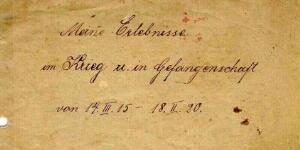 Meine Erlebnisse
im Krieg u. in Gefangenschaft
von 14. III. 15 – 18. II. 20.